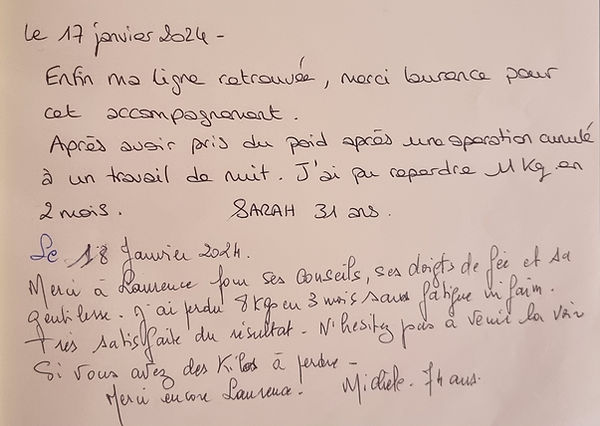 Le 17 janvier 2024 -
Enfin ma ligne retrouvée, merci Laurence pour
cet accompagnement.
Après avoir pris du poid après une opération cumulé
à un travail de nuit. J'ai pu reperdre 11 Kg en
2 mois. SARAH 31 ans.
Le 18 Janvier 2024.
Merci à Laurence pour ses conseils, ses doigts de fée et sa
gentillesse. J'ai perdu 8 kgs en 3 mois sans fatigue ni faim.
Très satisfaite du résultat - N'hésitez pas à venir la voir
Si vous avez des Kilos à perdre -
Merci encore Laurence. Michèle. 74 ans.